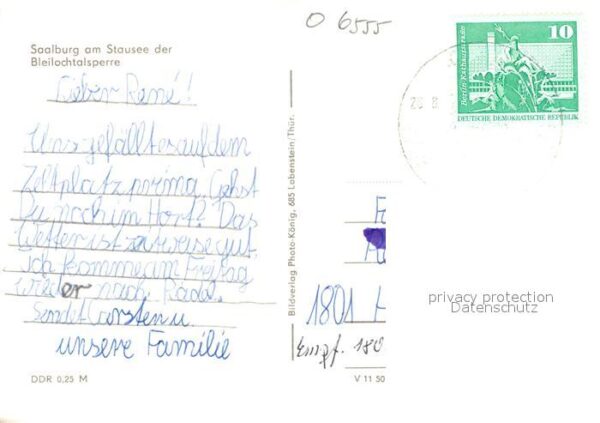 Saalburg am Stausee der
Bleilochtalsperre
Lieber René!
Uns gefällt es auf dem
Zeltplatz prima. Gehst
Du noch im Hort? Das
Wetter ist zeitweise gut.
Ich komme am Freitag
wieder nach Rada.
Sendet Carsten u.
unsere Familie
DDR 0,25 M
Bildverlag Photo-König, 685 Lobenstein/Thür.
O 6555
10
Berlin-Rathausstraße
DEUTSCHE DEMOKRATISCHE REPUBLIK
1801
Empf. 180
V 11 50
privacy protection
Datenschutz